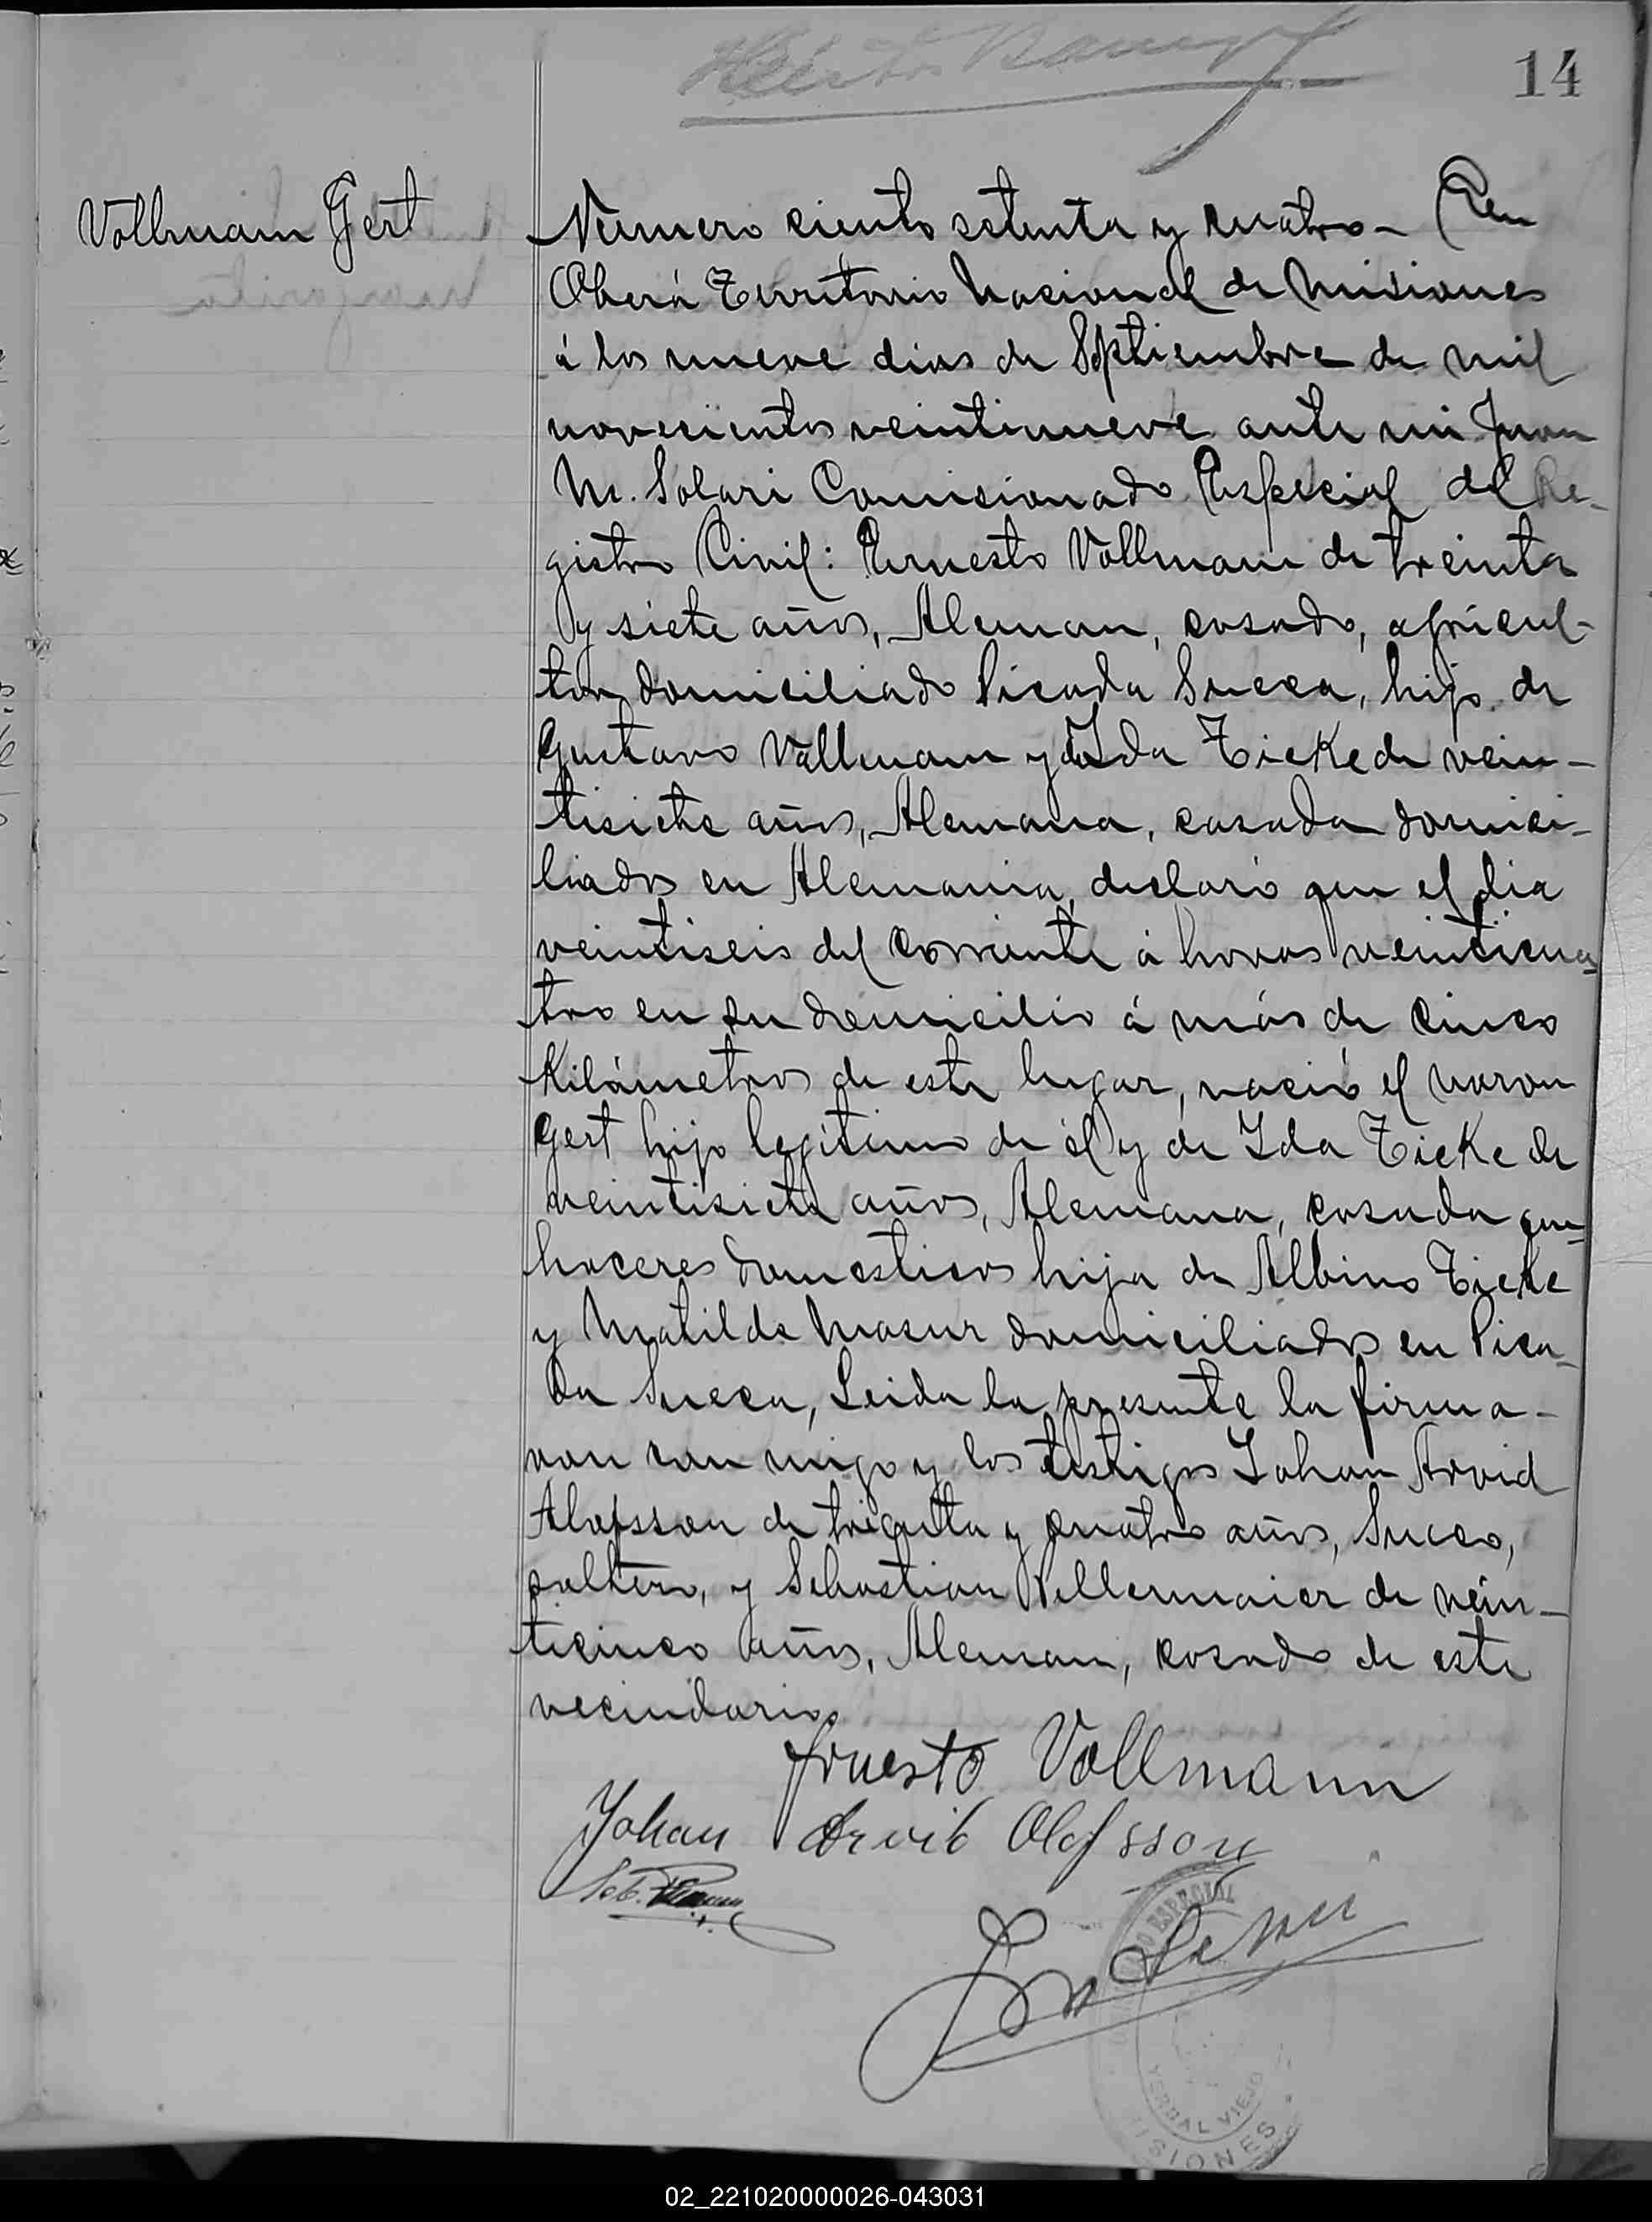 14
Vollmann Gert
Número ciento setenta y cuatro - En
Oberá Territorio Nacional de Misiones
á los nueve dias de Septiembre de mil
novecientos veintinueve ante mi Juan
M. Solari Comisionado Especial del Re-
gistro Civil: Ernesto Vollmann de treinta
y siete años, Aleman, casado, agricul-
tor domiciliado Picada Sueca, hijo de
Gustavo Vollmann y Ida Ticke de vein-
tisiete años, Alemana, casada domici-
liados en Alemania, declaró que el dia
veintiseis del corriente á horas veinticua-
tro en su domicilio á más de cinco
Kilómetros de este lugar, nació el varon
Gert hijo legitimo de él y de Ida Ticke de
veintisiete años, Alemana, casada que-
haceres domesticos hija de Albino Ticke
y Matilde Masur domiciliados en Pica-
da Sueca, Leida la presente la firma-
ron con migo y los testigos Johan Arvid
Alofsson de treinta y cuatro años, Sueco,
soltero, y Sebastian de vein-
ticinco años, Aleman, casado de este
vecindario
Ernesto Vollmann
Johan Arvid Olofsson
Seb.
ESPECIAL
YERBAL VIEJO
MISIONES
02_221020000026-043031